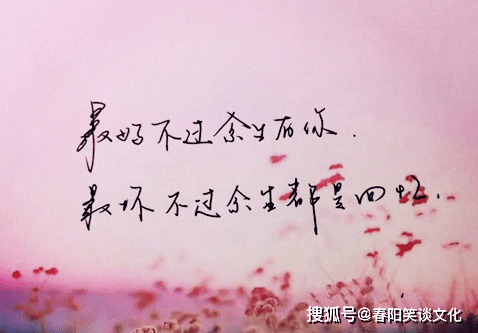 最好不过余生有你.
最坏不过余生都是回忆.
搜狐号@春阳笑谈文化